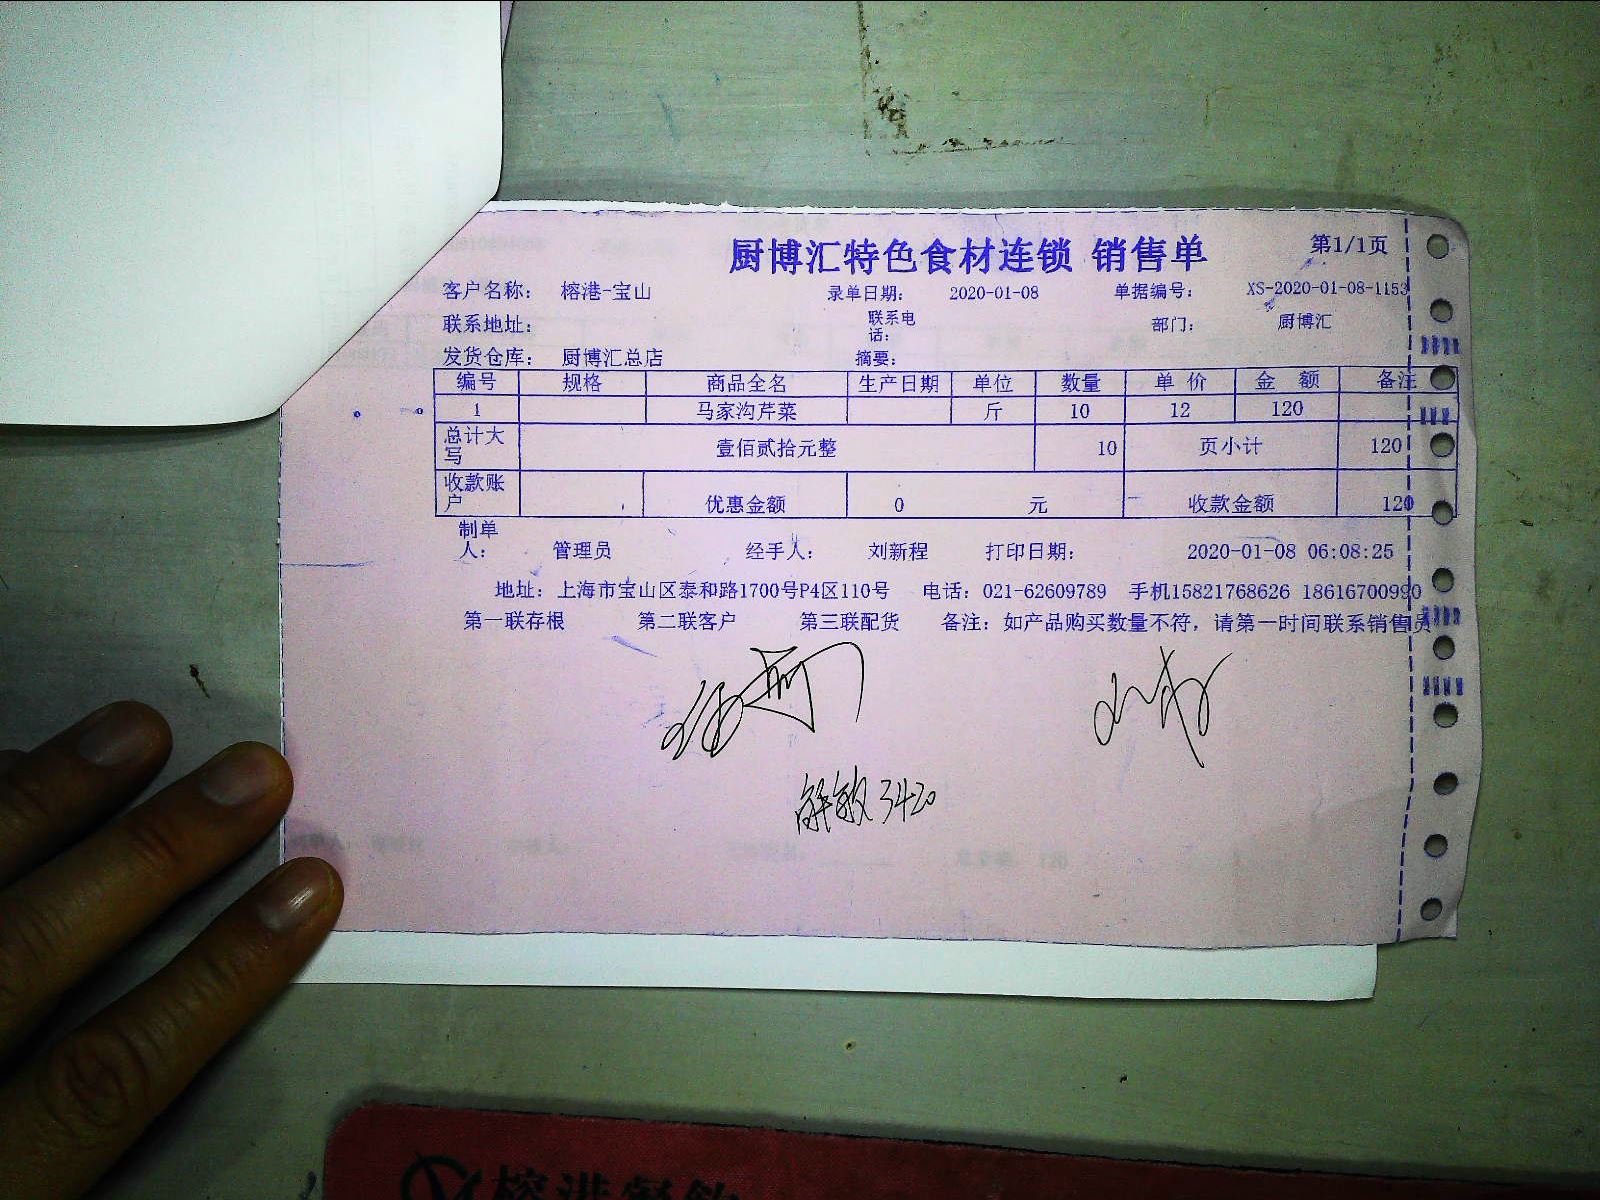 厨博汇特色食材连锁 销售单 第1/1页
客户名称： 榕港-宝山 录单日期： 2020-01-08 单据编号： XS-2020-01-08-1153
联系地址： 联系电话： 部门： 厨博汇
发货仓库： 厨博汇总店 摘要：
编号 规格 商品全名 生产日期 单位 数量 单价 金额 备注
1 马家沟芹菜 斤 10 12 120
总计大写 壹佰贰拾元整 10 页小计 120
收款账户 优惠金额 0 元 收款金额 120
制单人： 管理员 经手人： 刘新程 打印日期： 2020-01-08 06:08:25
地址：上海市宝山区泰和路1700号P4区110号 电话：021-62609789 手机15821768626 18616700990
第一联存根 第二联客户 第三联配货 备注：如产品购买数量不符，请第一时间联系销售员
解敏 3420
榕港餐饮